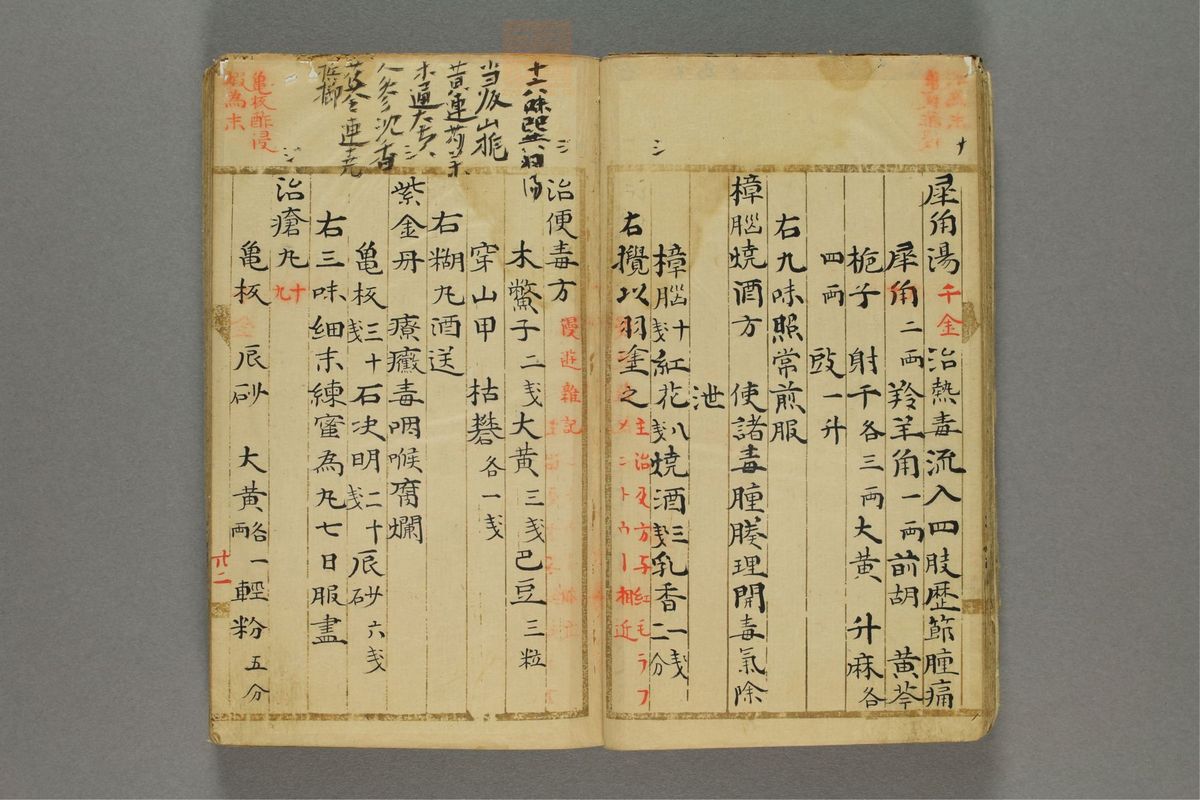 犀角湯 千金 治熱毒流入四肢歴節腫痛
犀角二両羚羊角一両前胡 黄芩
梔子 射干各三両大黄 升麻各
四両 豉一升
右九味照常煎服
樟脳焼酒方 使諸毒腫腠理開毒氣除
泄
樟脳十戔紅花八戔焼酒三戔乳香一戔二分
右攪以羽塗之
主治及方与紅毛ラフ
メントウー相近
十六味
当皈山梔
黄連芍薬
木通大黄
人参沉香
治便毒方 漫遊雜記
木鱉子二戔大黄三戔巴豆三粒
穿山甲 枯礬各一戔
右糊丸酒送
紫金丹 療癥毒咽喉腐爛
亀板三十戔石决明二十戔辰砂六戔
右三味細末練蜜為丸七日服盡
治瘡丸 十九
亀板酢浸
為末
亀板 辰砂 大黄各一両輕粉五分
廿二